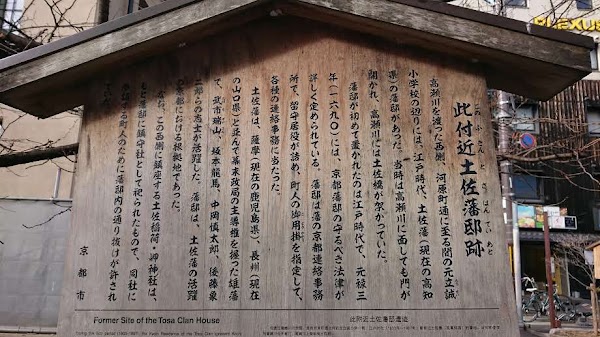 此付近土佐藩邸跡
こ ふ きん と さ はん てい あと
高瀬川を渡った西側、河原町通に至る間の元立誠
小学校の辺りには、江戸時代、土佐藩(現在の高知
県)の藩邸があった。当時は高瀬川に面しても門が
開かれ、高瀬川には土佐橋が架かっていた。
藩邸が初めて置かれたのは江戸時代で、元禄三
年(一六九〇)には、京都藩邸の守るべき法律が
詳しく定められている。藩邸は藩の京都連絡事務
所で、留守居役が詰め、町人の御用掛を指定して、
各種の連絡事務に当たった。
土佐藩は、薩摩(現在の鹿児島県)、長州(現在
の山口県)と並んで幕末政局の主導権を握った雄藩
で、武市瑞山、坂本龍馬、中岡慎太郎、後藤象
二郎らの志士が活躍した。藩邸は、土佐藩の活躍
の京都における根拠地であった。
なお、この西側に鎮座する土佐稲荷・岬神社は、
もと藩邸の鎮守社として祀られたもので、同社に
する町人のために藩邸内の通り抜けが許され
京都市
Former Site of the Tosa Clan House
此附近土佐藩邸遺址
PLEXUS